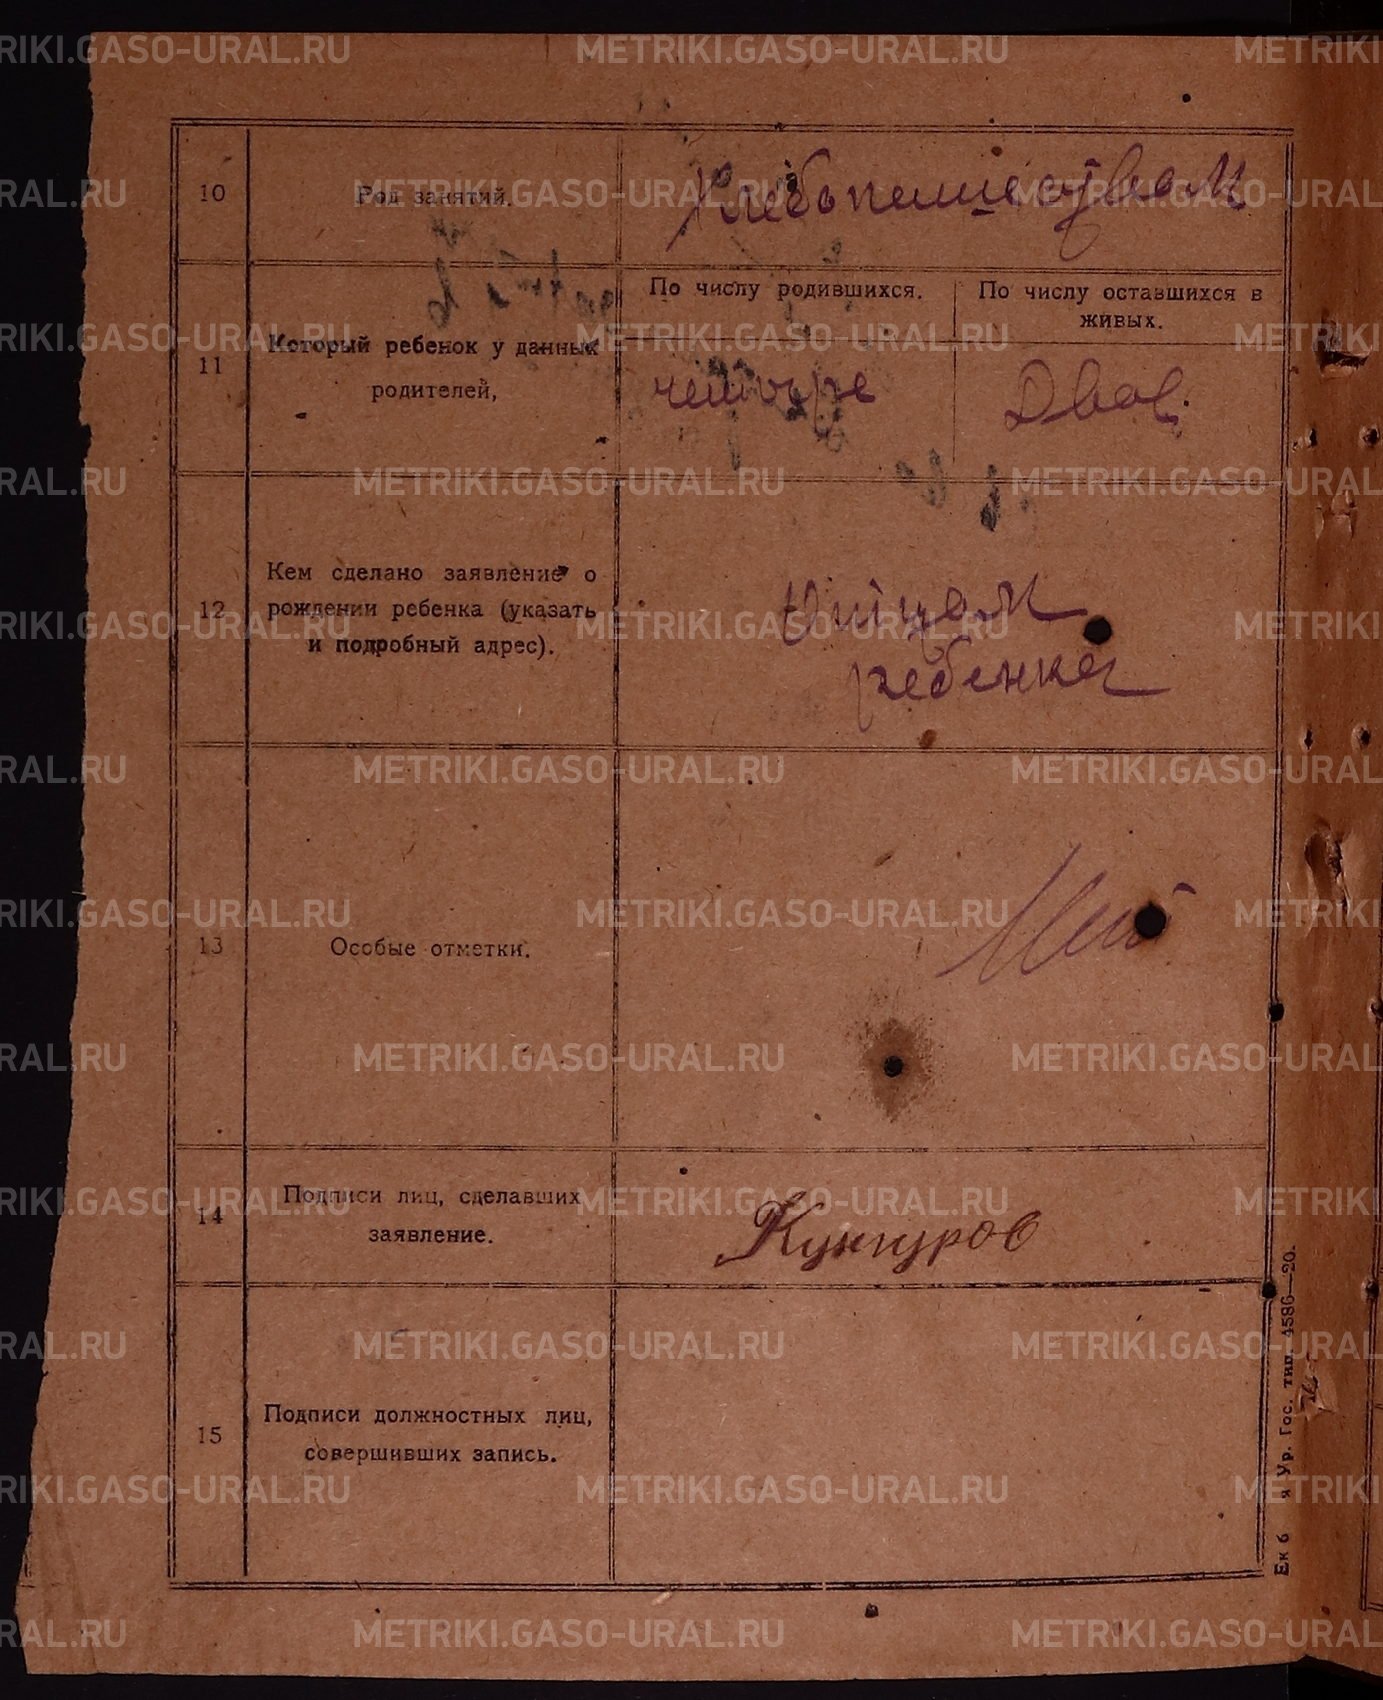 10
Род занятий.
Хлебопашеством
11
Который ребенок у данных
родителей,
По числу родившихся.
По числу оставшихся в
живых.
четыре
Двое.
12
Кем сделано заявление о
рождении ребенка (указать
и подробный адрес).
Отцом
ребенка
13
Особые отметки.
Нет
14
Подписи лиц, сделавших
заявление.
Кунгуров
15
Подписи должностных лиц,
совершивших запись.
Ур. Гос. тип. 4586—20.
METRIKI.GASO-URAL.RU